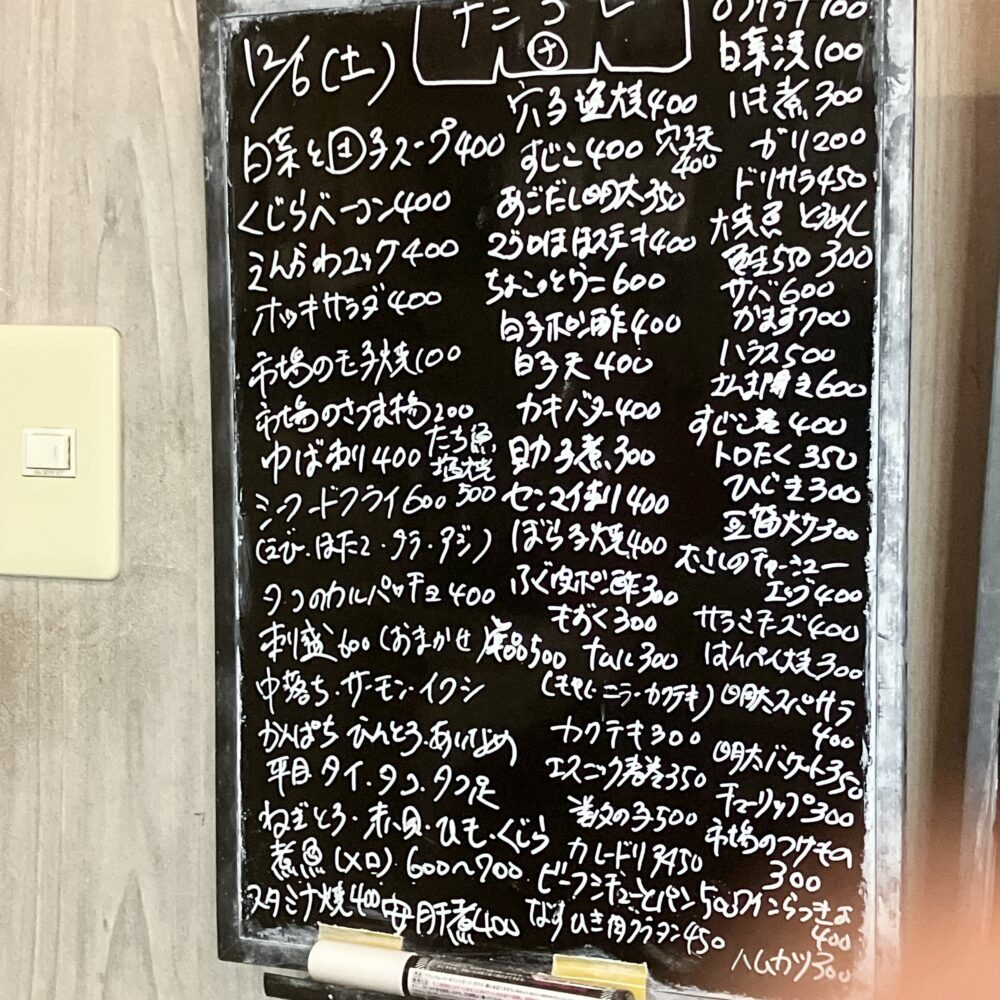 12/6(土)
白菜と団子スープ400
くじらベーコン400
えんがわユッケ400
ホッキサラダ400
市場のモ子焼100
市場のさつま揚200
ゆば刺り400
たち魚
塩焼
500
シーフードフライ600
(えび・ほたて・タラ・アジ)
タコのカルパッチョ400
刺盛600(おまかせ
中落ち・サーモン・イワシ
かんぱち びんとろ
平目 タイ・タコ・タコ足
ねぎとろ・赤貝・ひも・くじら
煮魚(メロ)600〜700
スタミナ焼400
安肝煮400
ナニコレ
ナ
穴子塩焼400
すじこ400
穴子天
400
あごだし明太350
ほほステキ400
600
白子ポン酢400
白子天400
カキバター400
助子煮300
センマイ刺り400
ぼら子焼400
ふぐ皮ポン酢300
もずく300
単品500
ナムル300
(もやし・ニラ・カクテキ)
カクテキ300
エスニック春巻350
数の子500
カレードリア450
ビーフシチューとパン500
なすひき肉グラタン450
100
白菜漬100
煮300
ガリ200
ドリサラ450
大焼魚
鮭550
300
サバ600
かます700
ハラス500
さんま開き600
すじこ巻400
トロたく350
ひじき300
300
むさしのチャーシュー
エッグ400
サラミチーズ400
はんぺん焼300
明太スパサラ
400
明太バケット350
チューリップ300
市場のつけもの
300
ワインらっきょ
400
ハムカツ300